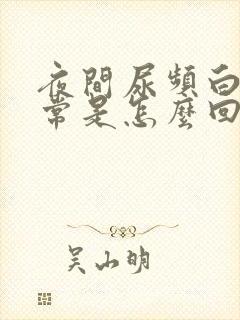 夜間尿頻白
常是怎麼回
吴小明